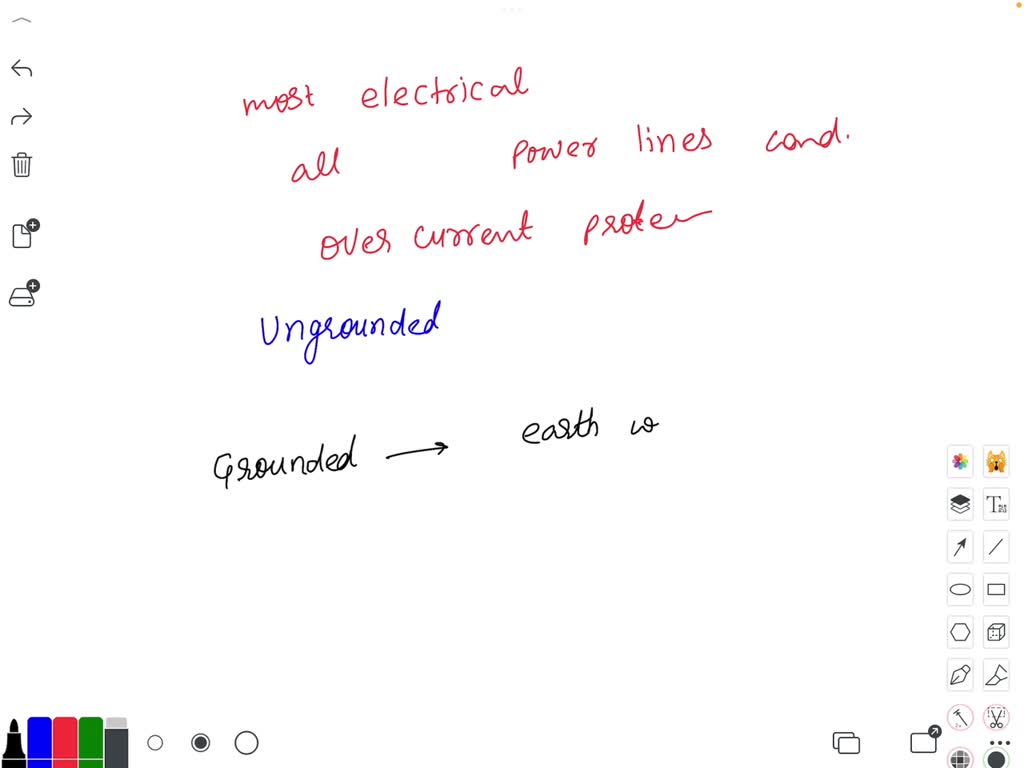 most electrical
all power lines cond.
over current
Ungrounded
Grounded → earth w